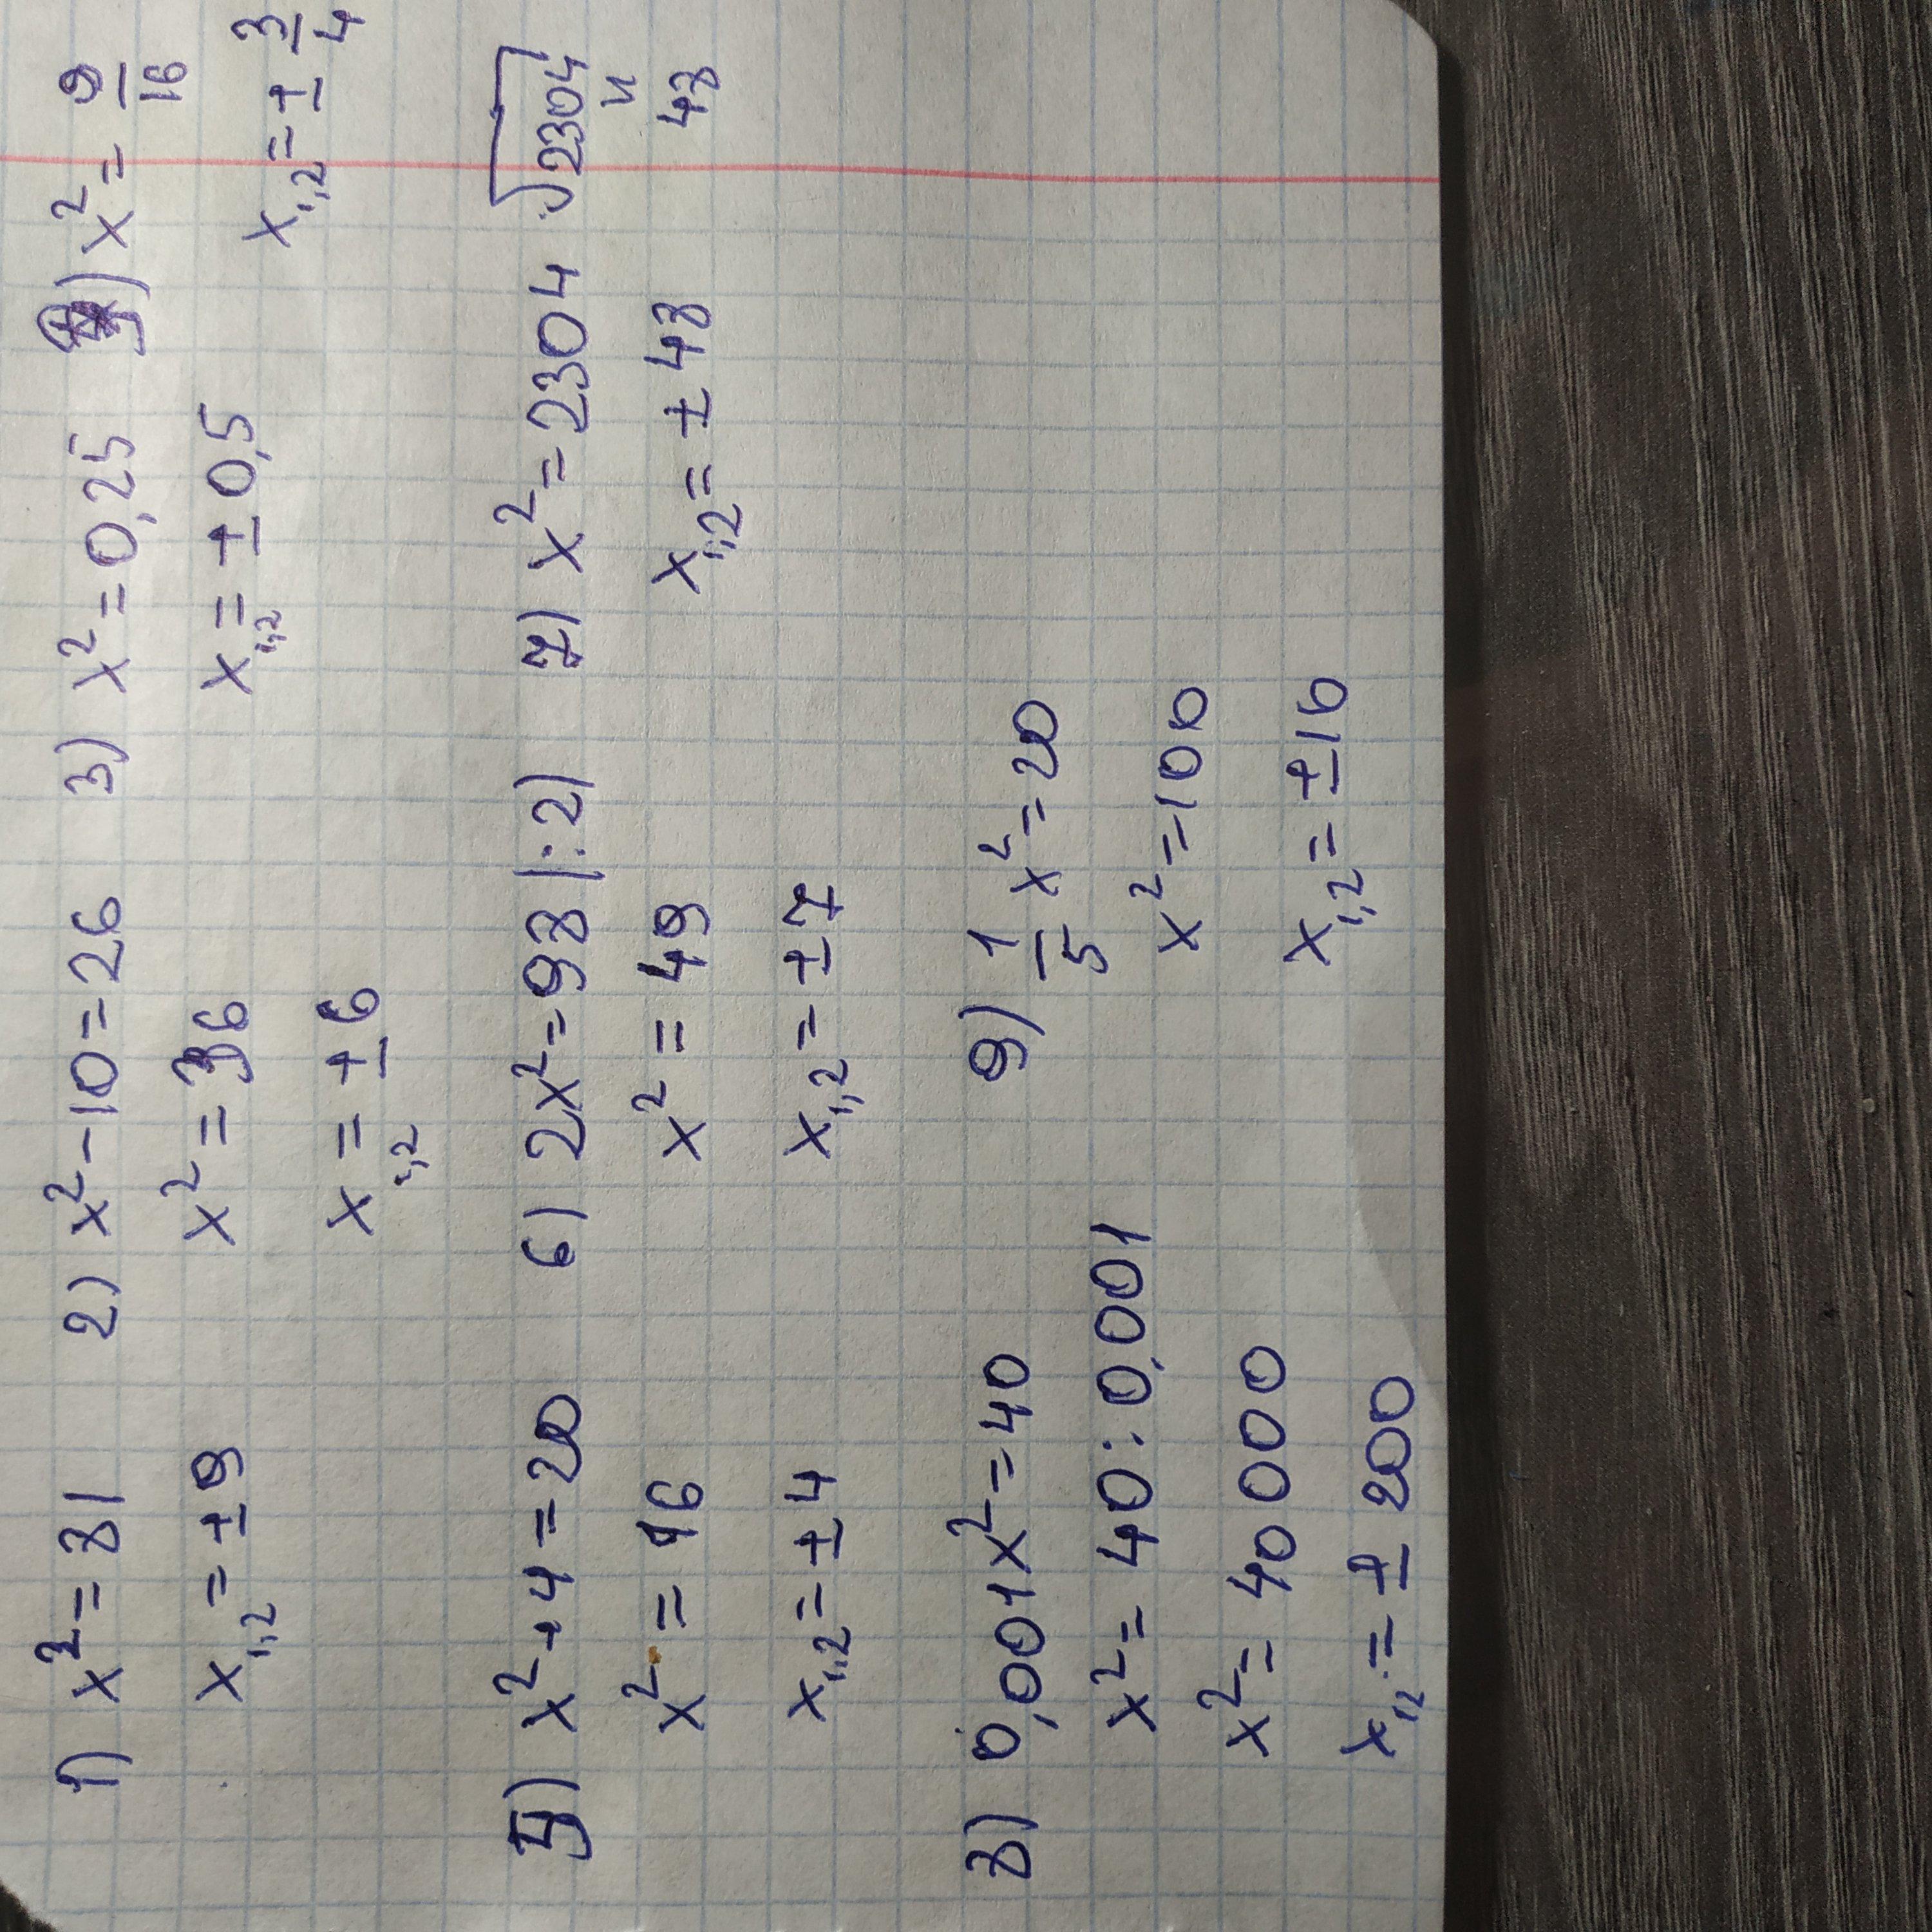 1) x² = 81
x₁,₂ = ±9
2) x² - 10 = 26
x² = 36
x₁,₂ = ±6
3) x² = 0,25
x₁,₂ = ±0,5
) x² = 9/16
x₁,₂ = ± 3/4
5) x² + 4 = 20
x² = 16
x₁,₂ = ±4
6) 2x² = 98 |:2)
x² = 49
x₁,₂ = ±7
7) x² = 2304
x₁,₂ = ±48
√2304
48
8) 0,001x² = 40
x² = 40 : 0,001
x² = 40 000
x₁,₂ = ± 200
9) 1/5 x² = 20
x² = 100
x₁,₂ = ±10